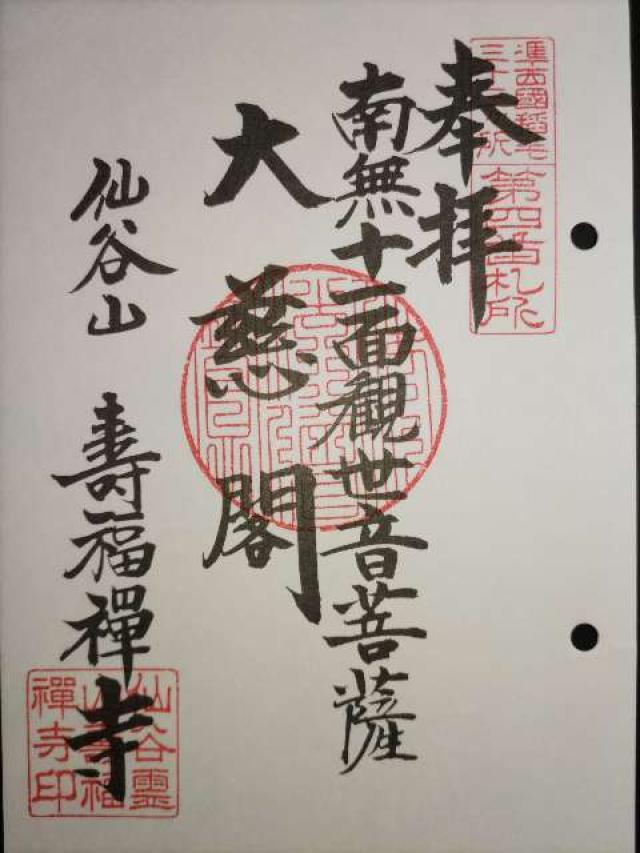 準西國稲毛
三十三所
第四番札所
奉拝
南無十一面觀世音菩薩
大慈閣
仙谷山 壽福禪寺
仙谷靈
山壽福
禪寺印